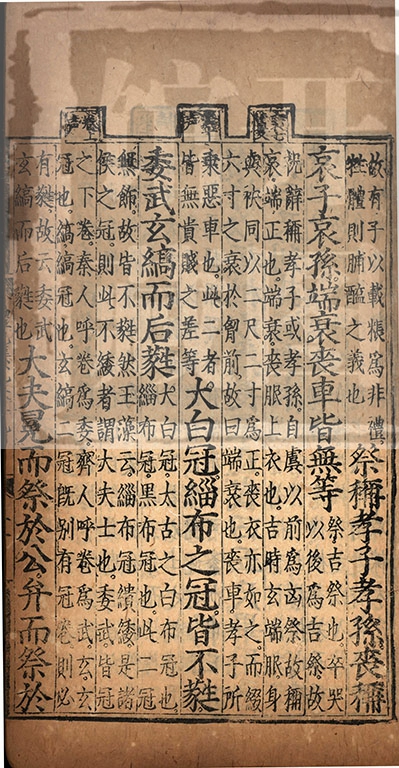 故有子以載粻爲非禮
牲體則脯醢之義也
祭稱孝子孝孫喪稱
哀子哀孫端衰喪車皆無等
祭吉祭也卒哭
以後爲吉祭故
祝辭稱孝子或孝孫自虞以前爲凶祭故稱
哀端正也端衰喪服上衣也吉時玄端服身
與袂同以二尺二寸爲正喪衣亦如之而綴
六寸之衰於胷前故曰端衰也喪車孝子所
乘惡車也此二者
皆無貴賤之差等
大白冠緇布之冠皆不蕤
委武玄縞而后蕤
大白冠太古之白布冠也
緇布冠黑布冠也此二冠
無飾故皆不蕤然玉藻云緇布冠繢緌是諸
侯之冠則此不緌者謂大夫士也委武皆冠
之下卷秦人呼卷爲委齊人呼卷爲武玄玄
冠也縞縞冠也玄縞二冠旣别有冠卷則必
有蕤故云委武
玄縞而后蕤也
大夫冕而祭於公弁而祭於